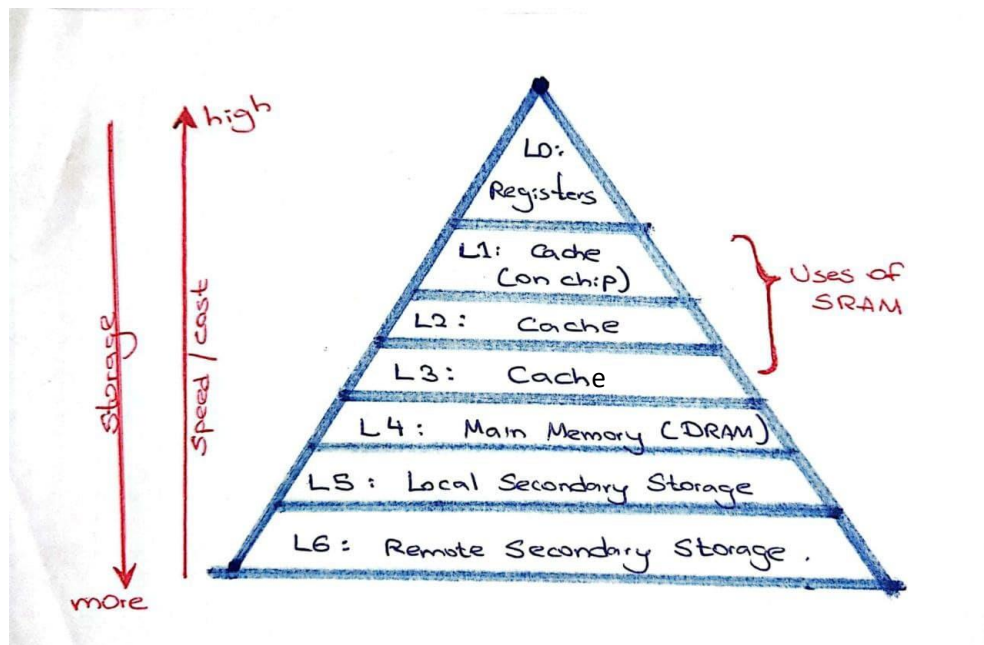 high
Storage
speed / cost
more
L0:
Registers
L1: Cache
(on chip)
L2: Cache
L3: Cache
L4: Main Memory (DRAM)
L5: Local Secondary Storage
L6: Remote Secondary Storage.
Uses of
SRAM